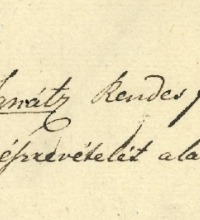 Ignátz Rendes
részrevételét ala